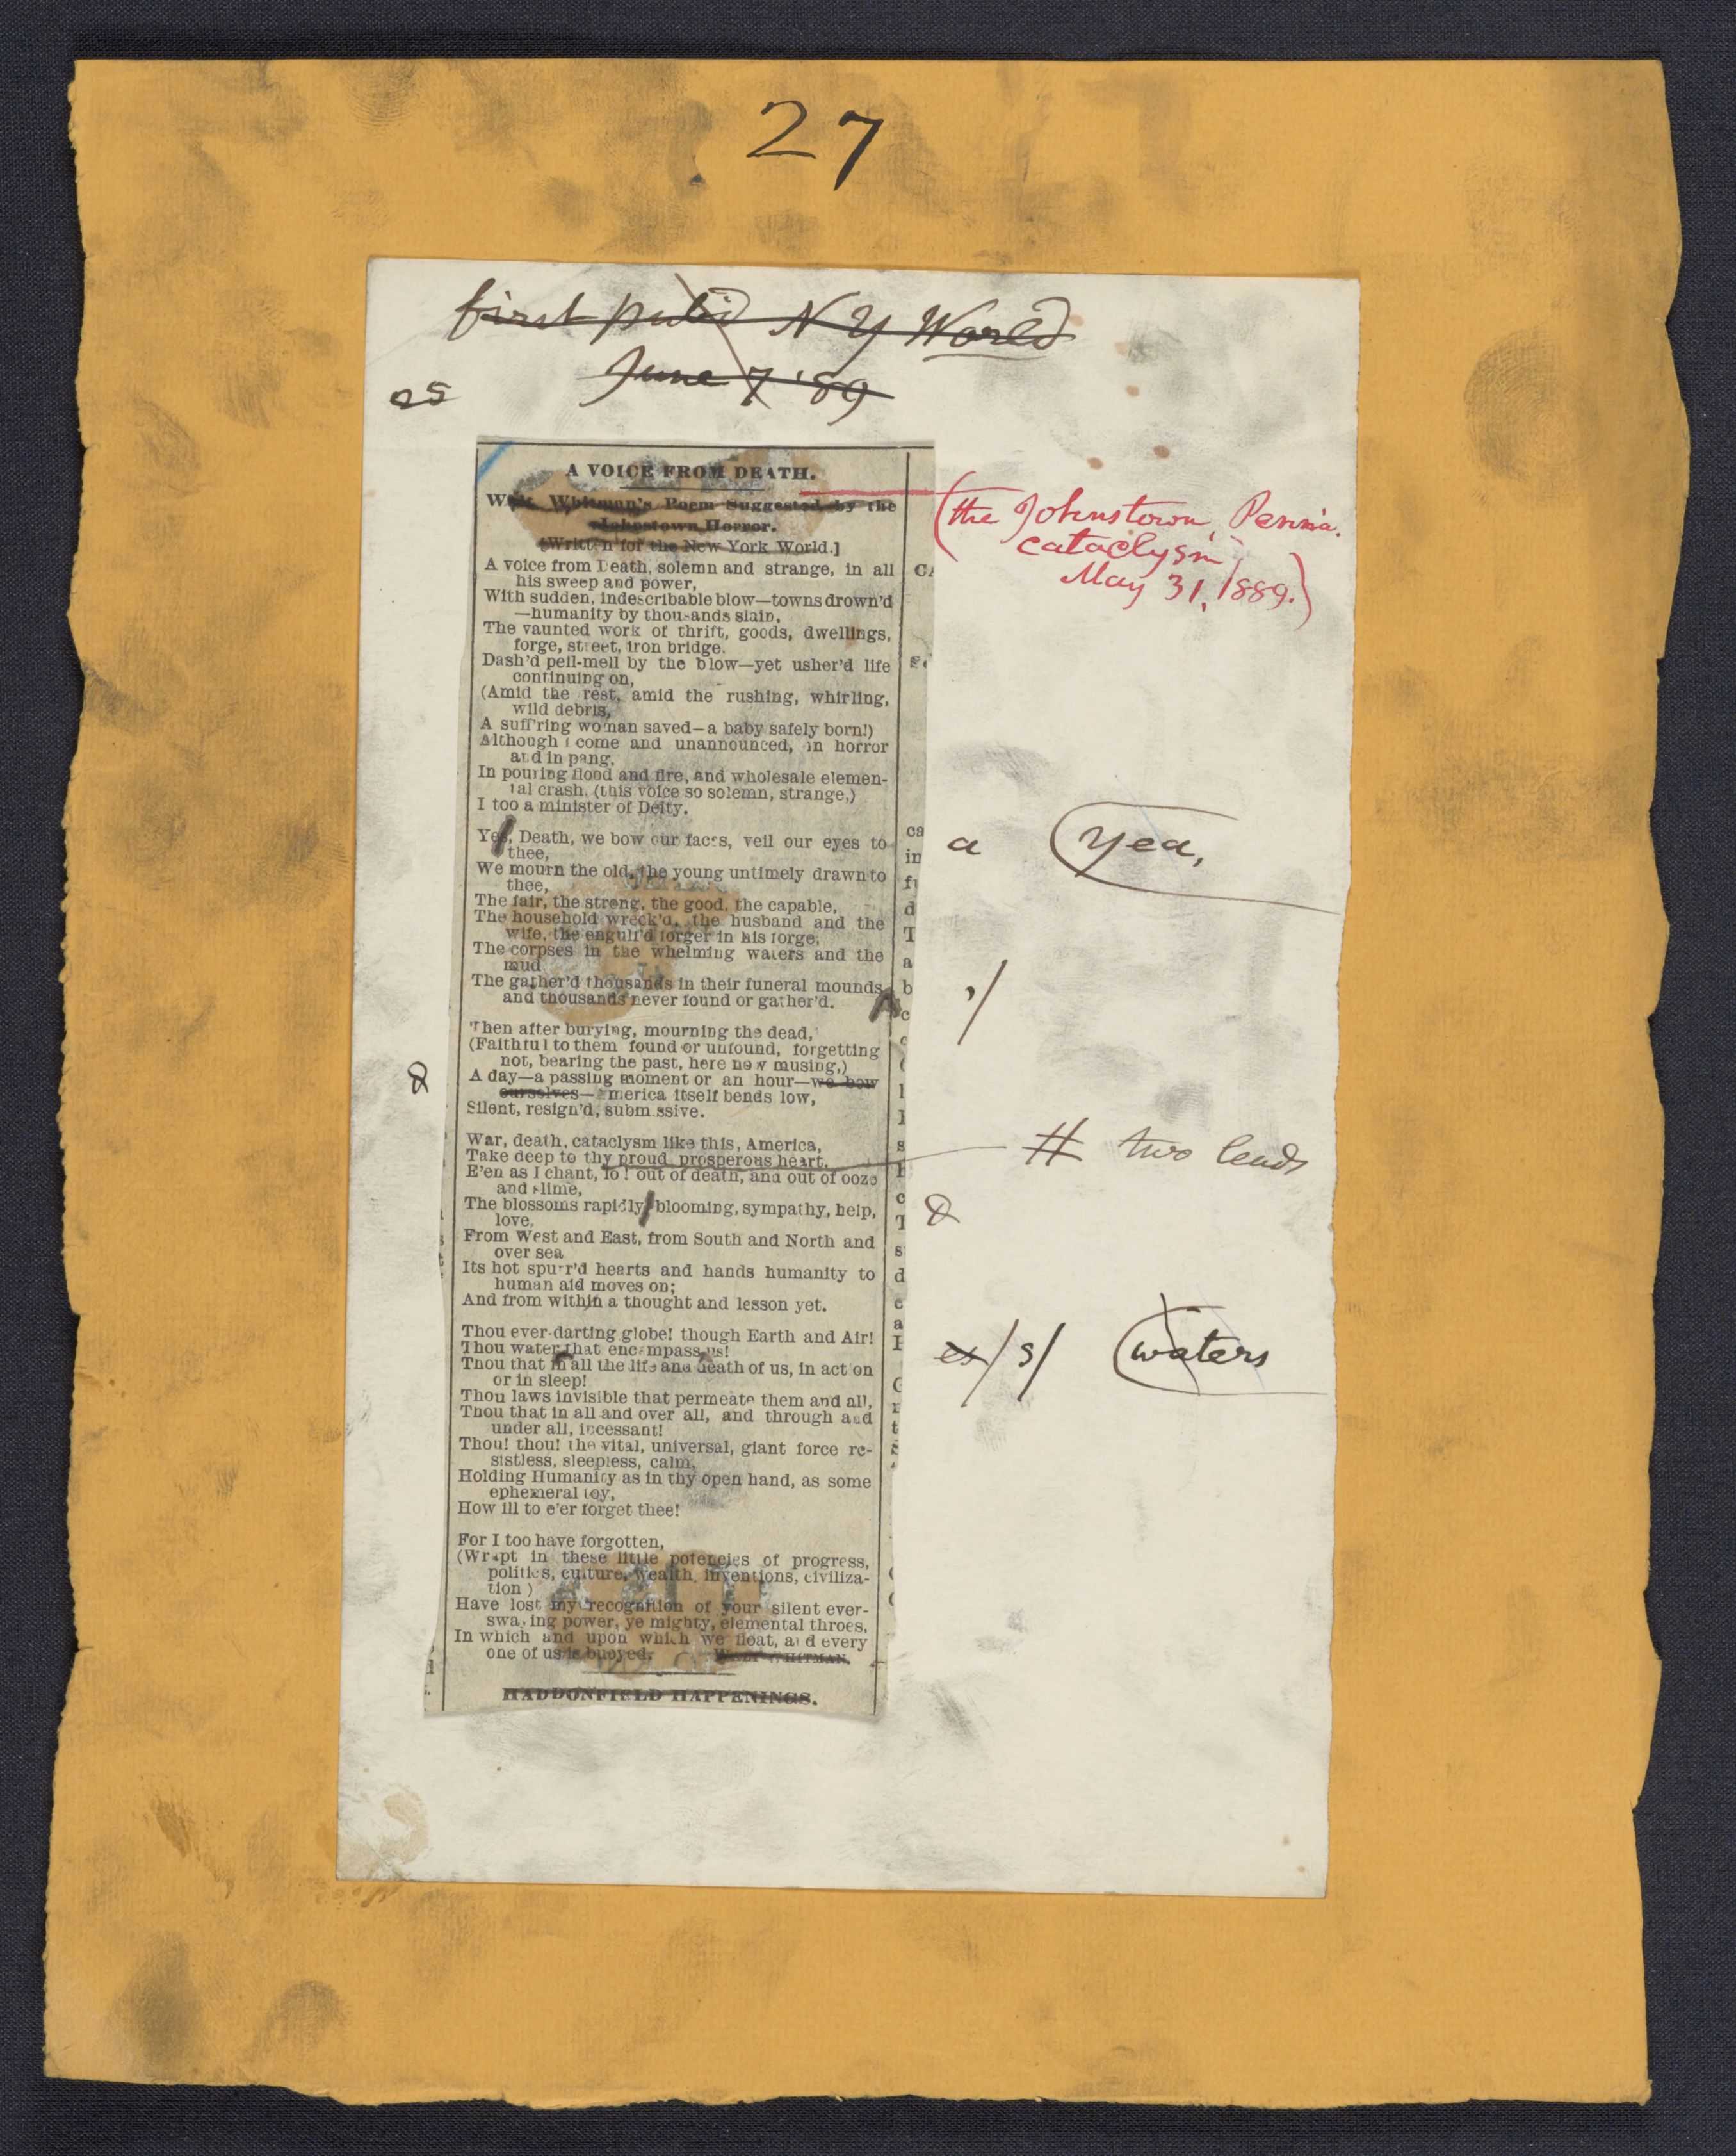 27
first pub'd N Y World
June 7 '89
25
A VOICE FROM DEATH.
Walt Whitman's Poem Suggested by the
Johnstown Horror.
[Written for the New York World.]
(the Johnstown, Penn'a.
cataclysm
May 31, 1889.)
A voice from Death, solemn and strange, in all
his sweep and power,
With sudden, indescribable blow—towns drown'd
—humanity by thousands slain,
The vaunted work of thrift, goods, dwellings,
forge, street, iron bridge,
Dash'd pell-mell by the blow—yet usher'd life
continuing on,
(Amid the rest, amid the rushing, whirling,
wild debris,
A suff'ring woman saved—a baby safely born!)
Although I come and unannounced, in horror
and in pang,
In pouring flood and fire, and wholesale elemen-
tal crash, (this voice so solemn, strange,)
I too a minister of Deity.
Yes, Death, we bow our faces, veil our eyes to
thee,
a yea,
We mourn the old, the young untimely drawn to
thee,
The fair, the strong, the good, the capable,
The household wreck'd, the husband and the
wife, the engulf'd forger in his forge,
The corpses in the whelming waters and the
mud
The gather'd thousands in their funeral mounds
and thousands never found or gather'd.
,/
Then after burying, mourning the dead,
(Faithful to them found or unfound, forgetting
not, bearing the past, here now musing,)
A day—a passing moment or an hour—we bow
ourselves—America itself bends low,
Silent, resign'd, submissive.
War, death, cataclysm like this, America,
Take deep to thy proud, prosperous heart.
# two leads
E'en as I chant, lo! out of death, and out of ooze
and slime,
The blossoms rapidly blooming, sympathy, help,
love,
From West and East, from South and North and
over sea
Its hot spurr'd hearts and hands humanity to
human aid moves on;
And from within a thought and lesson yet.
Thou ever-darting globe! though Earth and Air!
Thou water that encompass us!
es/ s/ waters
Thou that in all the life and death of us, in act on
or in sleep!
Thou laws invisible that permeate them and all,
Thou that in all and over all, and through and
under all, incessant!
Thou! thou! the vital, universal, giant force re-
sistless, sleepless, calm,
Holding Humanity as in thy open hand, as some
ephemeral toy,
How ill to e'er forget thee!
For I too have forgotten,
(Wrapt in these little potencies of progress,
politics, culture, wealth, inventions, civiliza-
tion)
Have lost my recognition of your silent ever-
swaying power, ye mighty, elemental throes,
In which and upon which we float, and every
one of us is buoyed.
WALT WHITMAN.
HADDONFIELD HAPPENINGS.